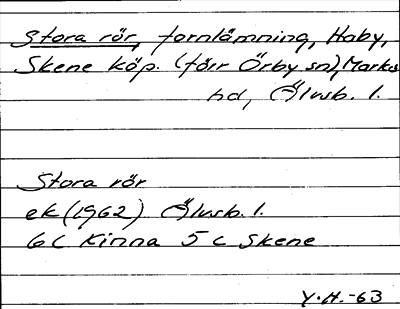 Stora rör, fornlämning, Haby,
Skene köp. (förr Örby sn), Marks
hd, Älvsb. l.
Stora rör
ek (1962) Älvsb. l.
6c Kinna 5c Skene
Y.H.-63